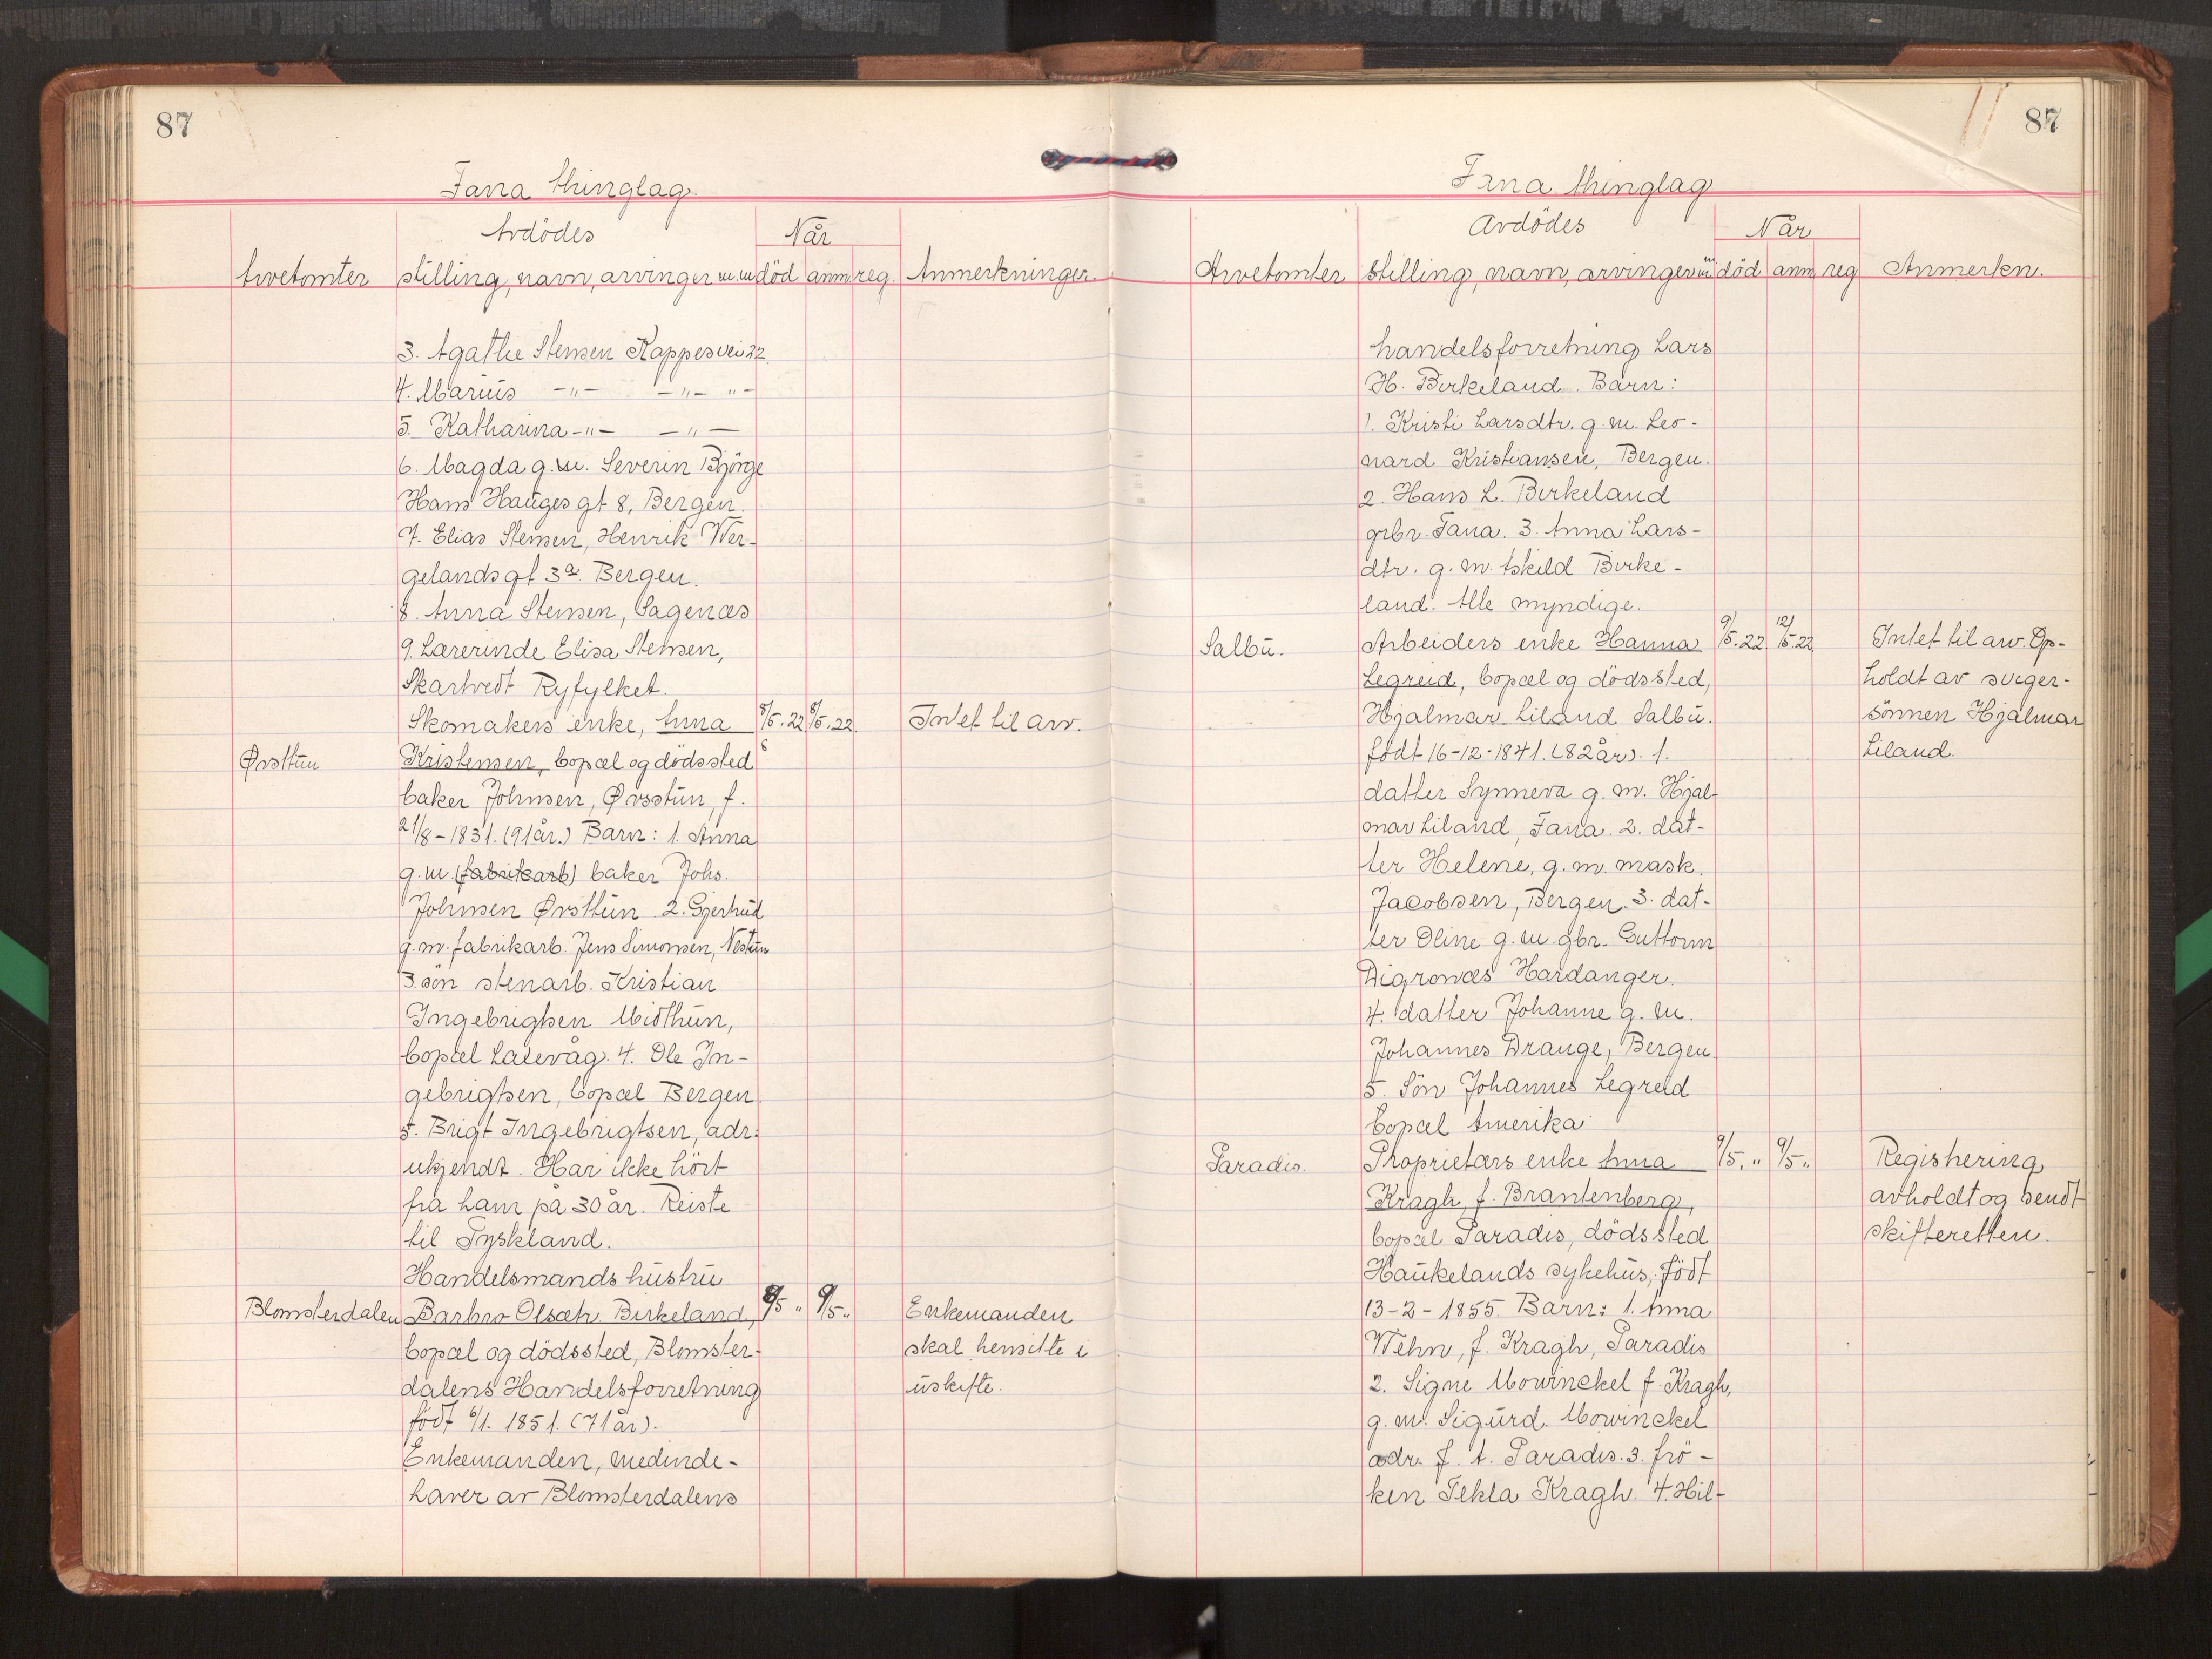 87
Fana thinglag.
Avdödes
Når
Arvetomter stilling, navn, arvinger m.m død anm. reg. Anmerkninger.
3. Agathe Stensen Kappesvei 22.
4. Marius -"- -"- "-
5. Katharina -"- -"-
6. Magda g.m. Severin Björge
Hans Hauges gt 8, Bergen.
7. Elias Stensen, Henrik Wer-
gelands gt 3a Bergen.
8. Anna Stensen, Sagenæs
9. Lærerinde Elisa Stensen,
Skartvedt Ryfylket.
Skomakers enke, Anna 8/5.22 8/5.22 Intet til arv.
Øvsttun Kristensen, bopæl og dödssted
baker Johnsen, Øvsstun, f.
21/8-1831. (91 år.) Barn: 1. Anna
g.m. (fabrikarb) baker Johs.
Johnsen Øvsttun 2. Gjertrud
g.m. fabrikarb. Jens Simonsen, Nestun
3. sön stenarb. Kristian
Ingebrigtsen Midthun,
bopæl Laxevåg. 4. Ole In-
gebrigtsen, bopæl Bergen
5. Brigt Ingebrigtsen, adr.
ukjendt. Har ikke hört
fra ham på 30 år. Reiste
til Tyskland.
Handelsmands hustru
Blomsterdalen Barbro Olsdtr. Birkeland, 8/5 " 9/5 " Enkemanden
bopæl og dödssted, Blomster- skal hensitte i
dalens Handelsforretning uskifte.
födt 6/1. 1851. (71 år).
Enkemanden, medinde-
haver av Blomsterdalens
87
Fana thinglag
Avdödes
Når
Arvetomter stilling, navn, arvinger m.m død anm reg Anmerkn.
handelsforretning Lars
H. Birkeland. Barn:
1. Kristi Larsdtr. g.m. Leo-
nard Kristiansen, Bergen.
2. Hans L. Birkeland
grbr. Fana. 3. Anna Lars-
dtr. g.m. Askild Birke-
land. Alle myndige.
Salbu. Arbeiders enke Hanna 9/5.22 12/5.22 Intet til arv. Op-
Legreid, bopæl og dödssted, holdt av sviger-
Hjalmar Liland Salbu. sönnen Hjalmar
födt 16-12-1841. (82 år). 1. Liland.
datter Synneva g.m. Hjal-
mar Liland, Fana. 2. dat-
ter Helene, g.m. mask.
Jacobsen, Bergen. 3. dat-
ter Oline g.m. gbr. Guttorm
Digranæs Hardanger.
4. datter Johanne g.m.
Johannes Drange, Bergen.
5. Sön Johannes Legreid
bopæl Amerika
Paradis. Proprietærs enke Anna 9/5. " 9/5 " Registrering
Kragh, f. Brantenberg, avholdt og sendt
bopæl Paradis, dödssted skifteretten.
Haukelands sykehus, födt
13-2-1855. Barn: 1. Anna
Wehn, f. Kragh, Paradis
2. Signe Mowinckel f. Kragh,
g.m. Sigurd Mowinckel
adr. f. t. Paradis. 3. frö-
ken Tekla Kragh. 4. Hil-